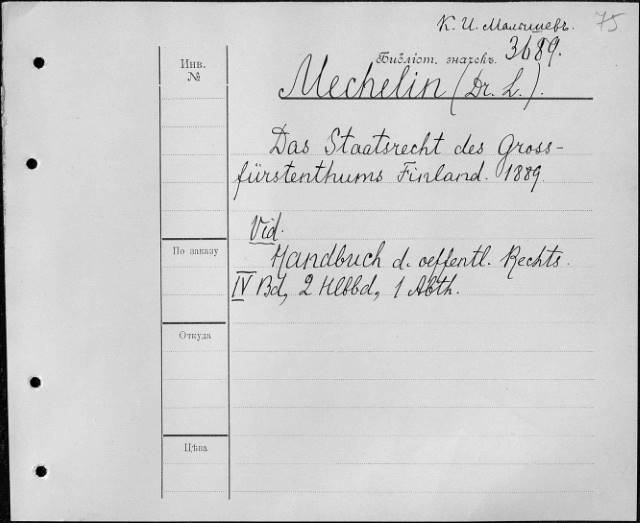 К. И. Малышевъ.
75
Библіот. значекъ. 3689.
Инв.
№
Mechelin (Dr. L.).
Das Staatsrecht des Gross-
fürstenthums Finland. 1889.
Vid.
По заказу
Handbuch d. oeffentl. Rechts.
IV Bd, 2 Hlbbd, 1 Abth.
Откуда
Цѣна